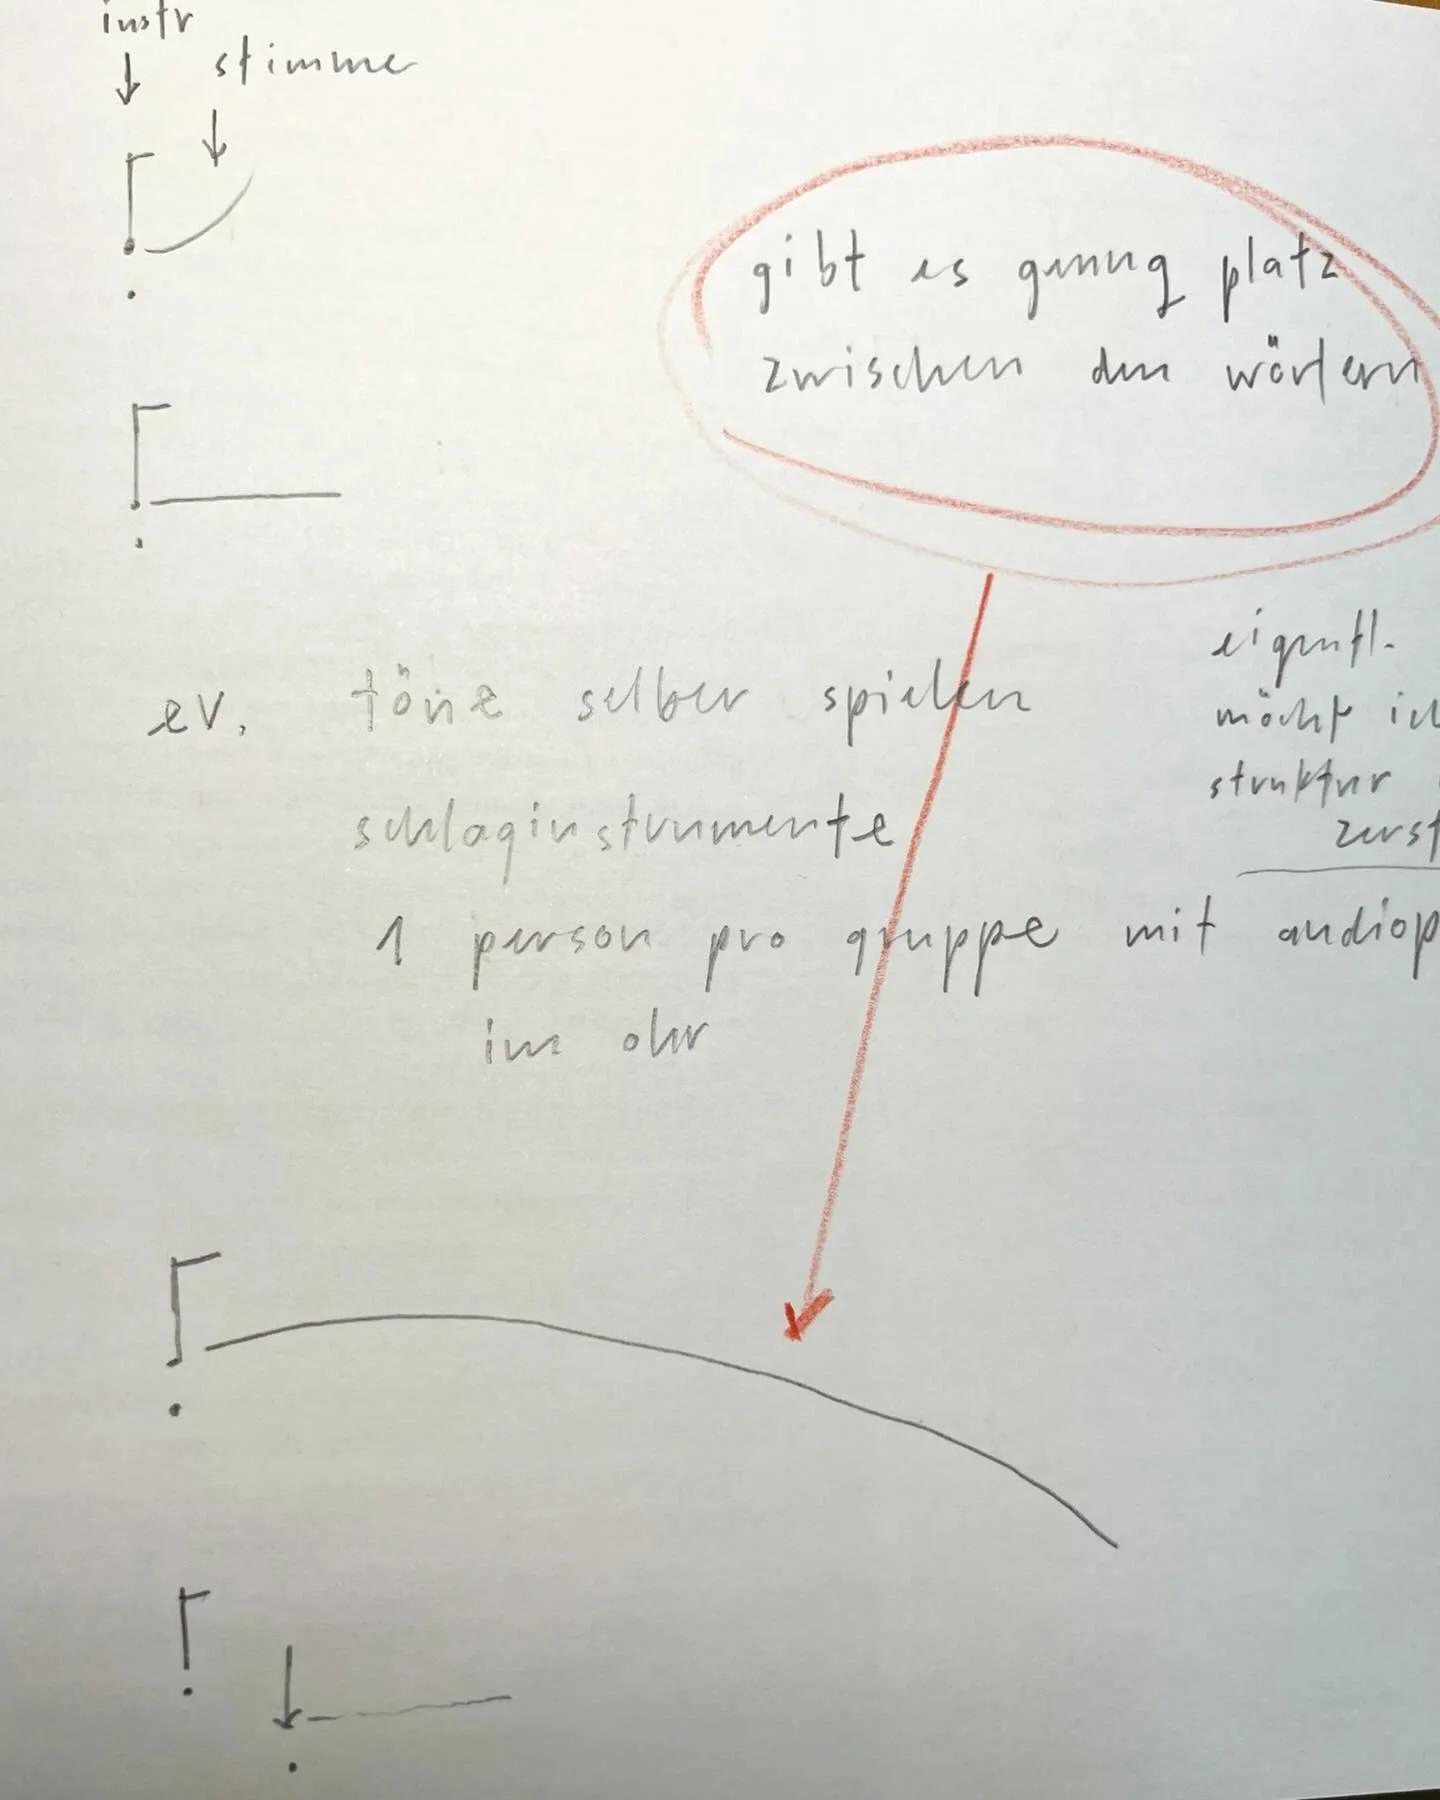 instr
stimme
gibt es genug platz
zwischen den wörtern
ev. töne selber spielen
schlaginstrumente
1 person pro gruppe mit audiop
im ohr
eigentl.
möcht ich
struktur
zerst